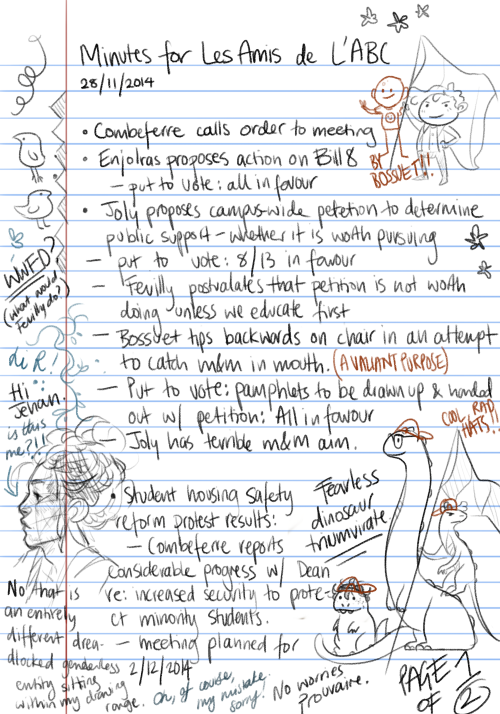 Minutes for Les Amis de L'ABC
28/11/2014
• Combeferre calls order to meeting
• Enjolras proposes action on Bill 8
– put to vote: all in favour
• Joly proposes campus-wide petetion to determine
public support – whether it is worth pursuing
– put to vote: 8/13 in favour
– Feuilly postualates that petition is not worth
doing unless we educate first
– Bossuet tips backwards on chair in an attempt
to catch m&m in mouth. (A VALIANT PURPOSE)
– Put to vote: pamphlets to be drawn up & handed
out w/ petition: All in favour
– Joly has terrible m&m aim.
Student housing safety
reform protest results:
– Combeferre reports
considerable progress w/ Dean
re: increased security to prote-
ct minority students.
– meeting planned for
2/12/2014
BY
BOSSUET!!
WWFD?
(what would
Feuilly do?)
hi R!
Hi
Jehan.
is this
me?!!
COOL RAD
HATS!!
Fearless
dinosaur
triumvirate
No that is
an entirely
different drea-
dlocked genderless
entity sitting
within my drawing
range.
Oh, of course,
my mistake.
sorry!
No worries
Prouvaire.
PAGE 1
OF 2